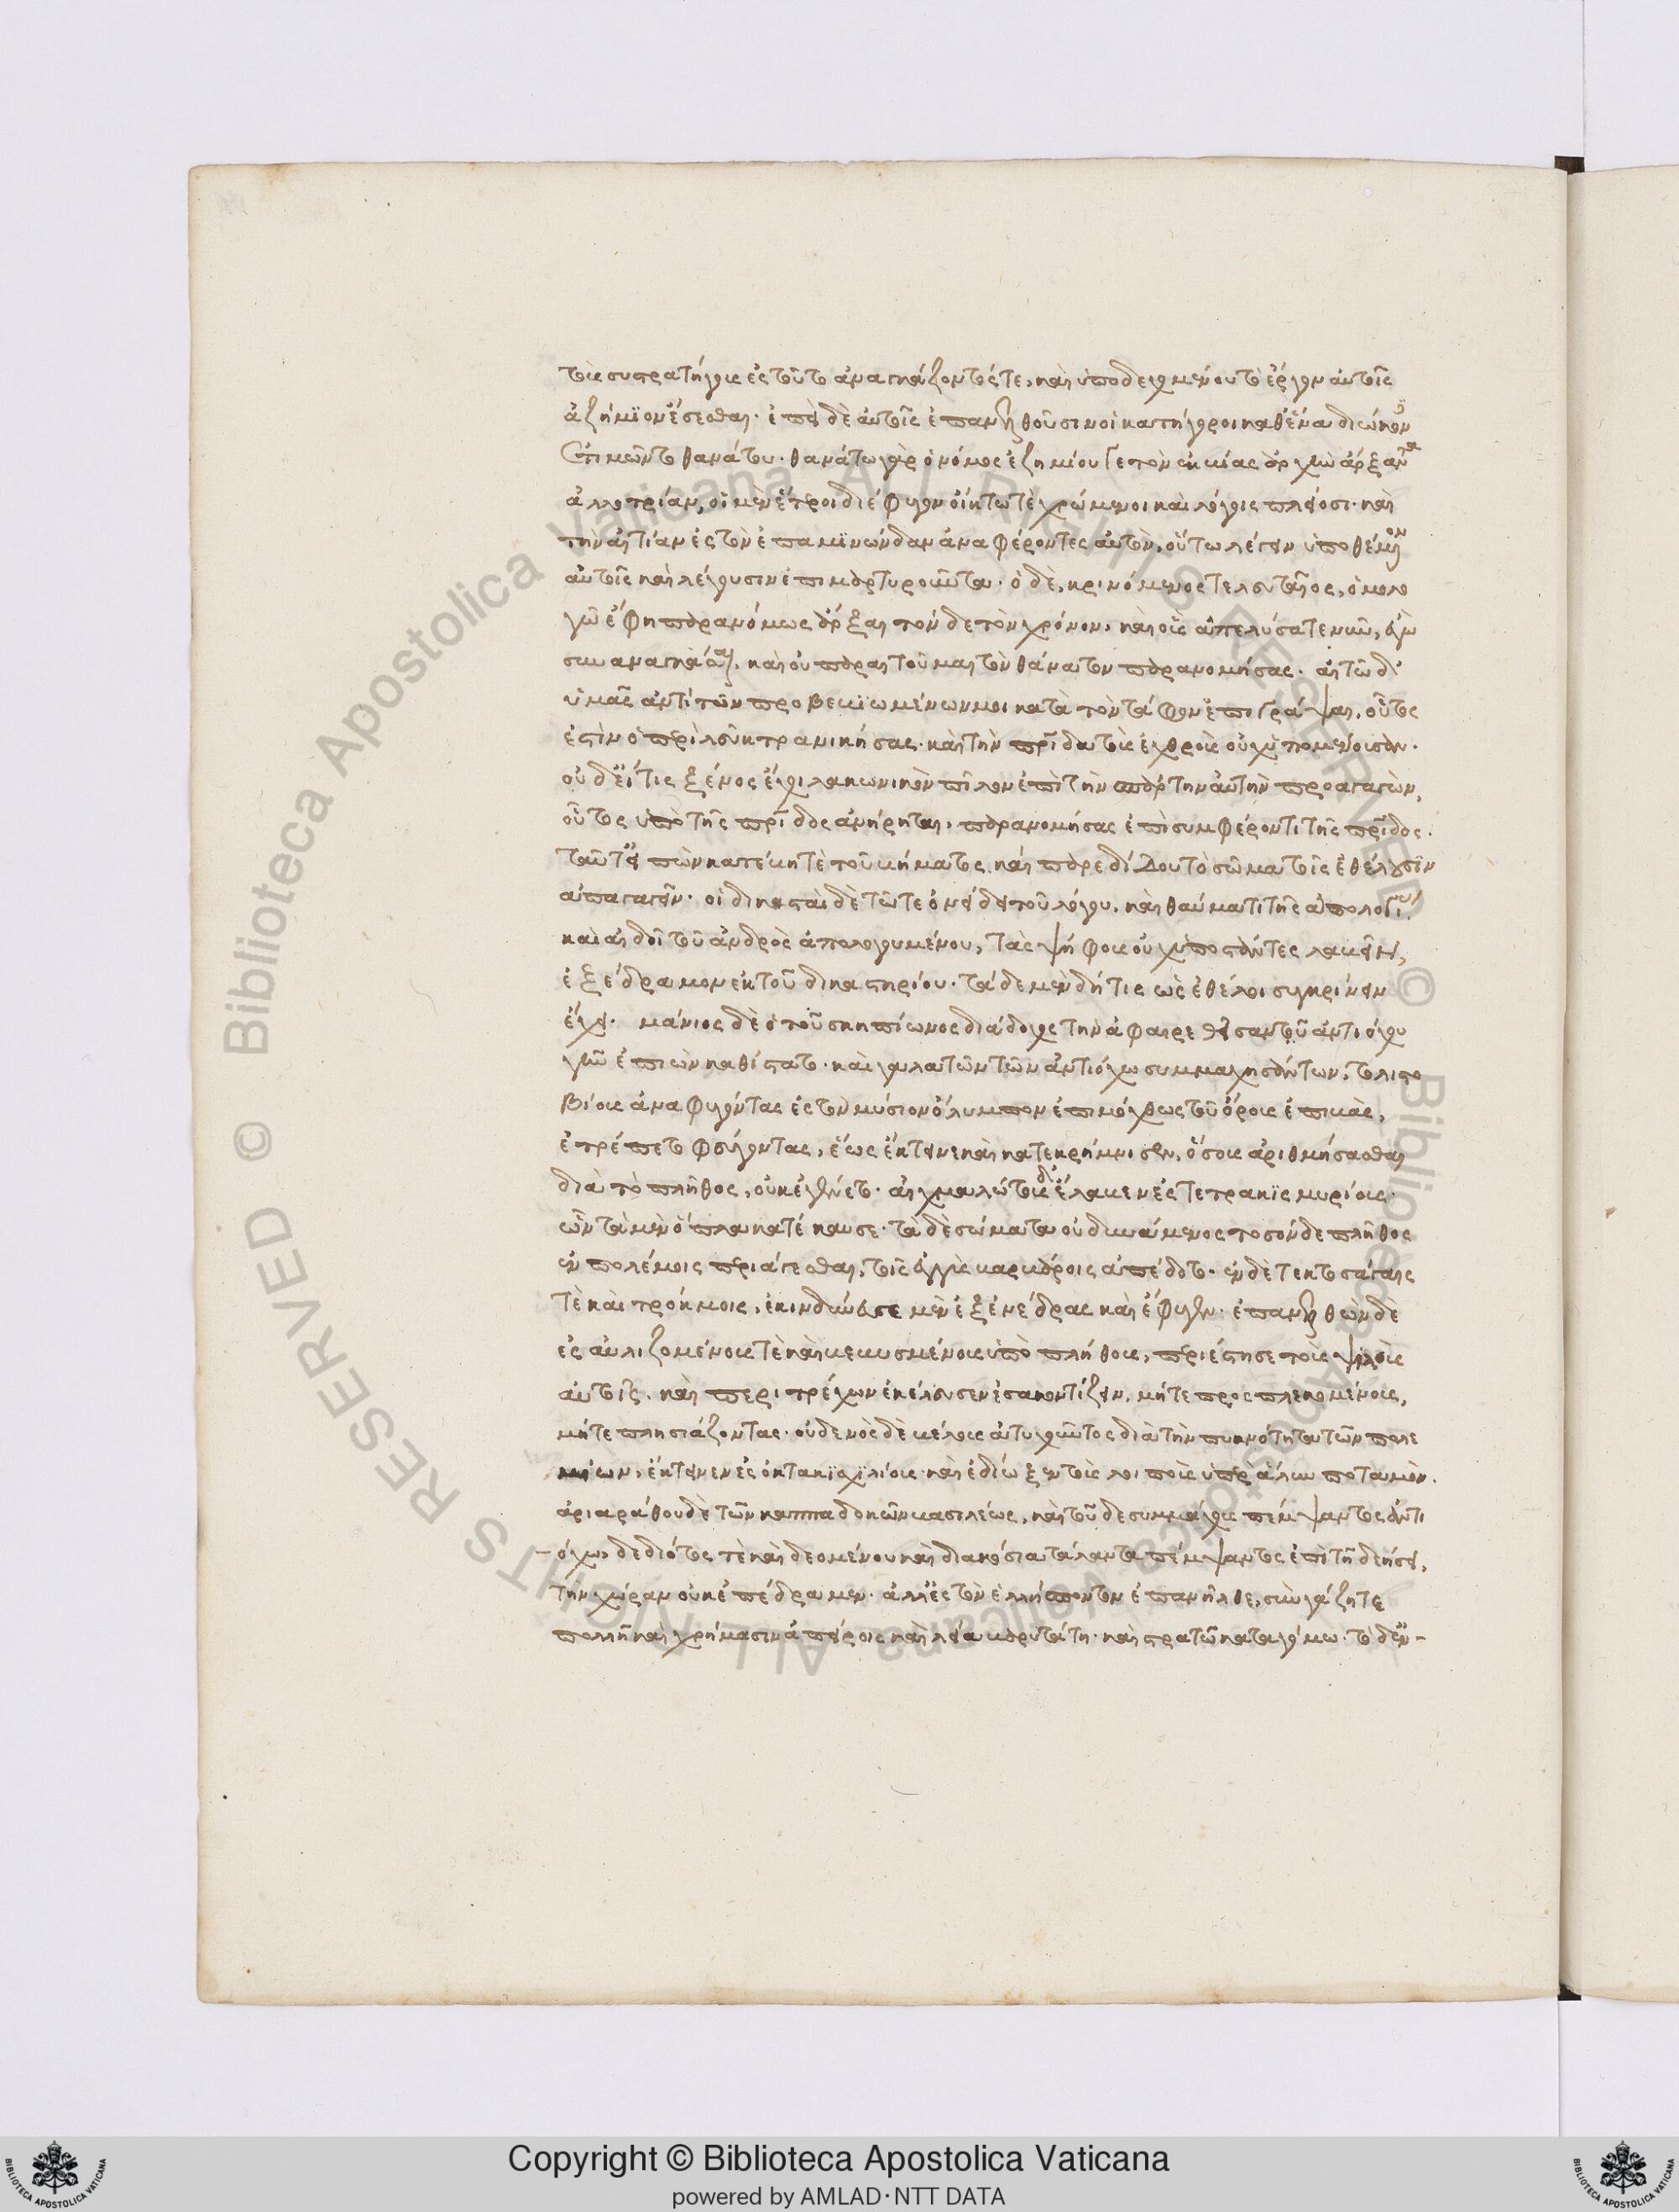 τοὺς συστρατήγους ἐς τοῦτο ἀναγκάζοντός τε, καὶ ὑποδεχομένου τὸ ἔργον αὐτοῖς
ἀζήμιον ἔσεσθαι. ἐπεὶ δὲ αὐτοῖς ἐπανελθοῦσιν οἱ κατήγοροι καθ' ἕνα διώκοντες
ἐτιμῶντο θανάτου. θανάτῳ γὰρ ὁ νόμος ἐζημίου γε τὸν ἐκ βίας ἀρχὴν ἄρξαντα
ἀλλοτρίαν, οἱ μὲν ἕτεροι διέφυγον οἴκτῳ τὲ χρώμενοι καὶ λόγοις πλείοσι. καὶ
τὴν αἰτίαν ἐς τὸν ἐπαμϊνώνδαν ἀναφέροντες αὐτὸν, οὕτω λέγειν ὑποθέμενον
αὐτοῖς καὶ λέγουσιν ἐπιμαρτυροῦντα. ὁ δὲ, κρινόμενος τελευταῖος, ὁμολο
γῶ ἔφη παρανόμως ἄρξαι τόνδε τὸν χρόνον, καὶ οὓς ἀπελύσατε νῦν, ἐγὼ
συναναγκάσαι. καὶ οὐ παραιτοῦμαι τὸν θάνατον παρανομήσας. αἰτῶ δ'
ὑμᾶς ἀντὶ τῶν προβεβϊωμένων μοι κατὰ τὸν τάφον ἐπιγράψαι, οὗτος
ἐστὶν ὁ περὶ λεῦκτρα νικήσας. καὶ τὴν πρίδα τοὺς ἐχθροὺς οὐχ ὑπομένουσαν.
οὐδ' εἴ τις ξένος ἔχοι λακωνικὸν πῖλον ἐπὶ τὴν σπάρτην αὐτὴν προαγαγών,
οὗτος ὑπὸ τῆς πρίδος ἀνήρηται, παρανομήσας ἐπὶ συμφέροντι τῆς πρίδος.
ταῦτ' εἰπὼν κατέβη τὲ τοῦ βήματος. καὶ παρεδίδου τὸ σῶμα τοῖς ἐθέλουσιν
ἀπαγαγεῖν. οἱ δικασταὶ δὲ τῶ τε ὀνείδει τοῦ λόγου, καὶ θαύματι τῆς ἀπολογίας,
καὶ αἰδοῖ τοῦ ἀνδρὸς ἀπολογουμένου, τὰς ψήφους οὐχ ὑποστάντες λαβεῖν,
ἐξέδραμον ἐκ τοῦ δικαστηρίου. τάδε μὲν δή τις ὡς ἐθέλοι συγκρίνειν
ἔχει. μάνιος δὲ ὁ τοῦ σκηπίωνος διάδοχος τὴν ἀφαιρεθεῖσαν τοῦ ἀντιόχου
γῆν ἐπιὼν καθίστατο. καὶ γαλατῶν τῶν ἀντιόχω συμμαχησάντων, τολιστο
βίους ἀναφυγόντας ἐς τὸν μύσιον ὄλυμπον ἐπιμόχθως τοῦ ὄρους ἐπιβὰς,
ἐτρέπετο φεύγοντας, ἕως ἔκτεινε καὶ κατεκρήμνισεν, ὅσους ἀριθμήσασθαι
διὰ τὸ πλῆθος, οὐκ ἐγένετο. αἰχμαλώτους δ' ἔλαβεν ἐς τετρακϊς μυρίους.
ὧν τὰ μὲν ὅπλα κατέκαυσε. τὰ δὲ σώματα οὐ δυνάμενος τοσόνδε πλῆθος
ἐν πολέμοις περιάγεσθαι, τοῖς ἐγγὺς βαρβάροις ἀπέδοτο. ἐν δὲ τεκτοσάγαις
τὲ καὶ τρόκμοις, ἐκινδύνευσε μὲν ἐξ ἐνέδρας καὶ ἔφυγεν. ἐπανελθὼν δὲ
ἐς αὐλιζομένους τὲ καὶ βεβυσμένους ὑπὸ πλήθους, περιέστησε τοὺς ψιλοὺς
αὐτοῖς. καὶ περιτρέχων ἐκέλευσεν ἐσακοντίζειν, μήτε προσπλεκομένους,
μήτε πλησιάζοντας. οὐδενὸς δὲ βέλους ἀτυχοῦντος διὰ τὴν πυκνότητα τῶν πολε
μίων, ἔκτεινεν ἐς ὀκτακϊσχϊλίους. καὶ ἐδίωξεν τοὺς λοιποὺς ὑπὲρ ἅλυν ποταμόν.
ἀριαράθου δὲ τῶν καππαδοκῶν βασιλέως, καὶ τοῦδε συμμάχους πέμψαντος ἀντι
όχω, δεδιότος τὲ καὶ δεομένου καὶ διακόσια τάλαντα πέμψαντος ἐπὶ τῇ δεήσει,
τὴν χώραν οὐκ ἐπέδραμεν. ἀλλ' ἐς τὸν ἑλλήσποντον ἐπανῆλθε, σὺν γάζῃ τε
πολλῇ καὶ χρήμασιν ἀπείροις καὶ λεία βαρυτάτῃ. καὶ στρατῶ καταγόμω. τὸ δ' εὖ-